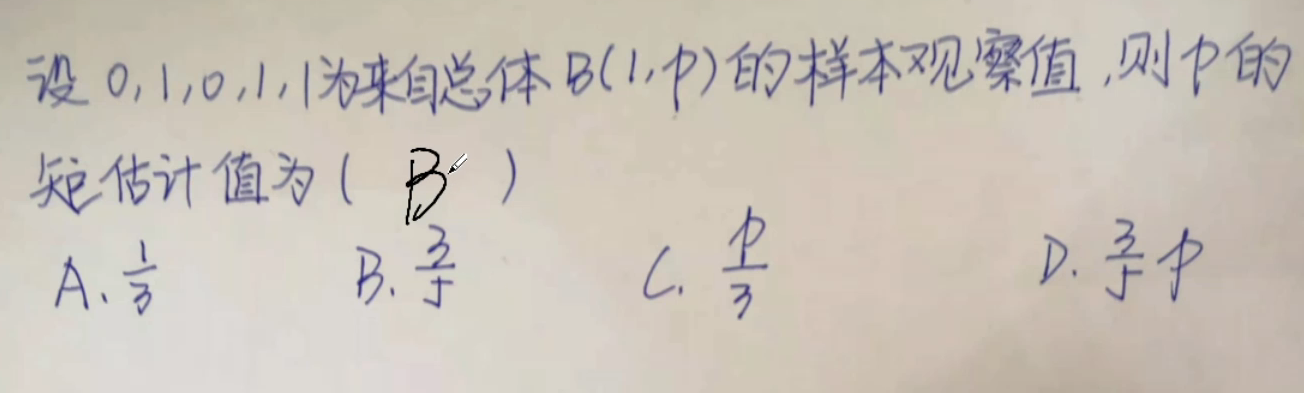 设 0,1,0,1,1为来自总体 B(1,p) 的样本观察值,则p的
矩估计值为( B )
A. 1/3 B. 3/5 C. p/3 D. 3/5 p